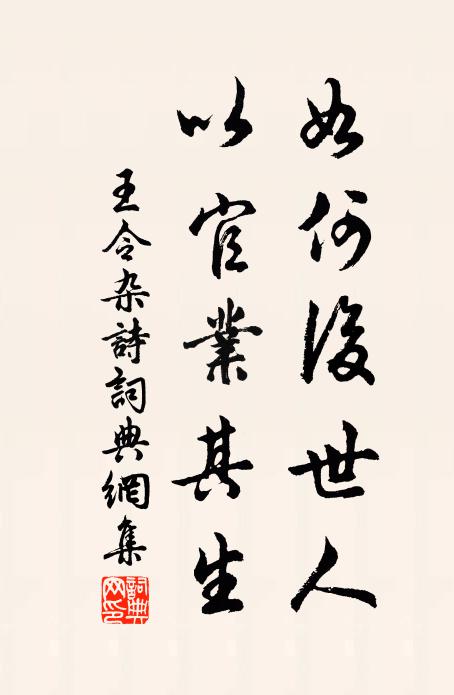 如何後世人
以官業其生
王令杂詩詞典網集
詞典網印